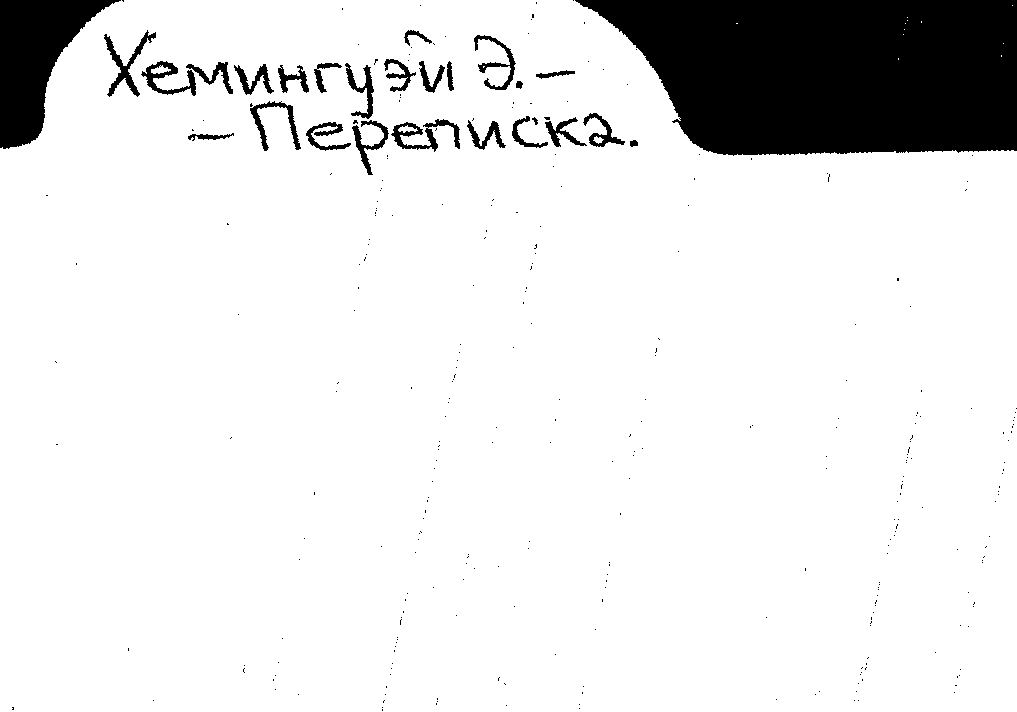 Хемингуэй Э. –
– Переписка.